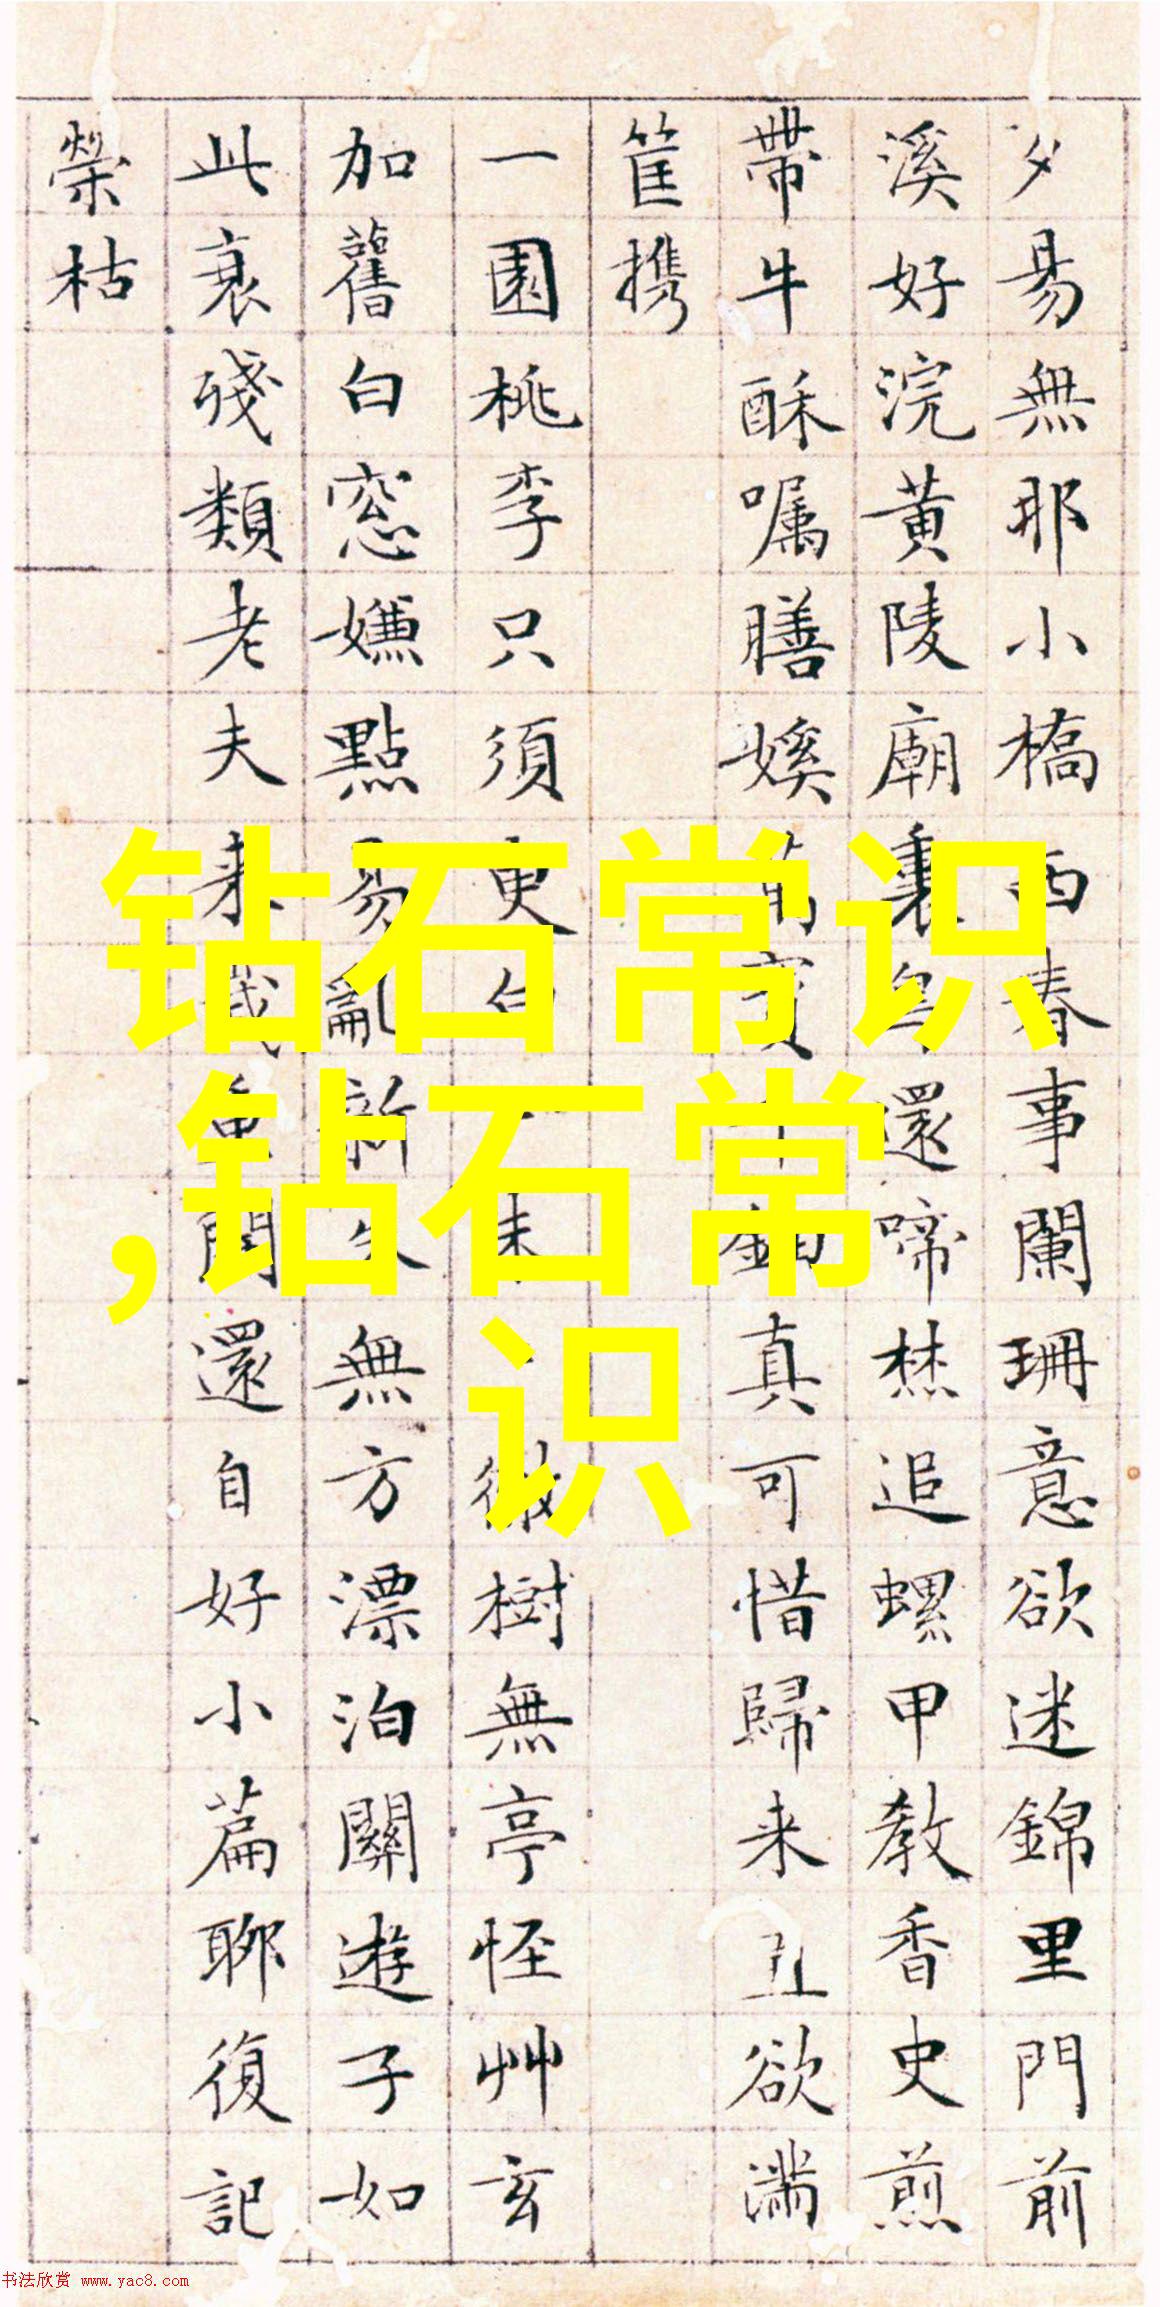 夕易無那小橋西春事闌珊意欲迷錦里門前
溪好浣黃陵廟裏還啼焚追螺甲教香史煎
帶牛酥囑膳真可惜歸来丑欲滿
筐携
一園桃李只須更樹無亭怪艸玄
加舊白窓嫌點易亂新無方漂泊關遊子如
此衰殘類老夫来還自好小篇聊復記
榮枯
钻石常识
,钻石常
识
书法欣赏 www.yac8.com